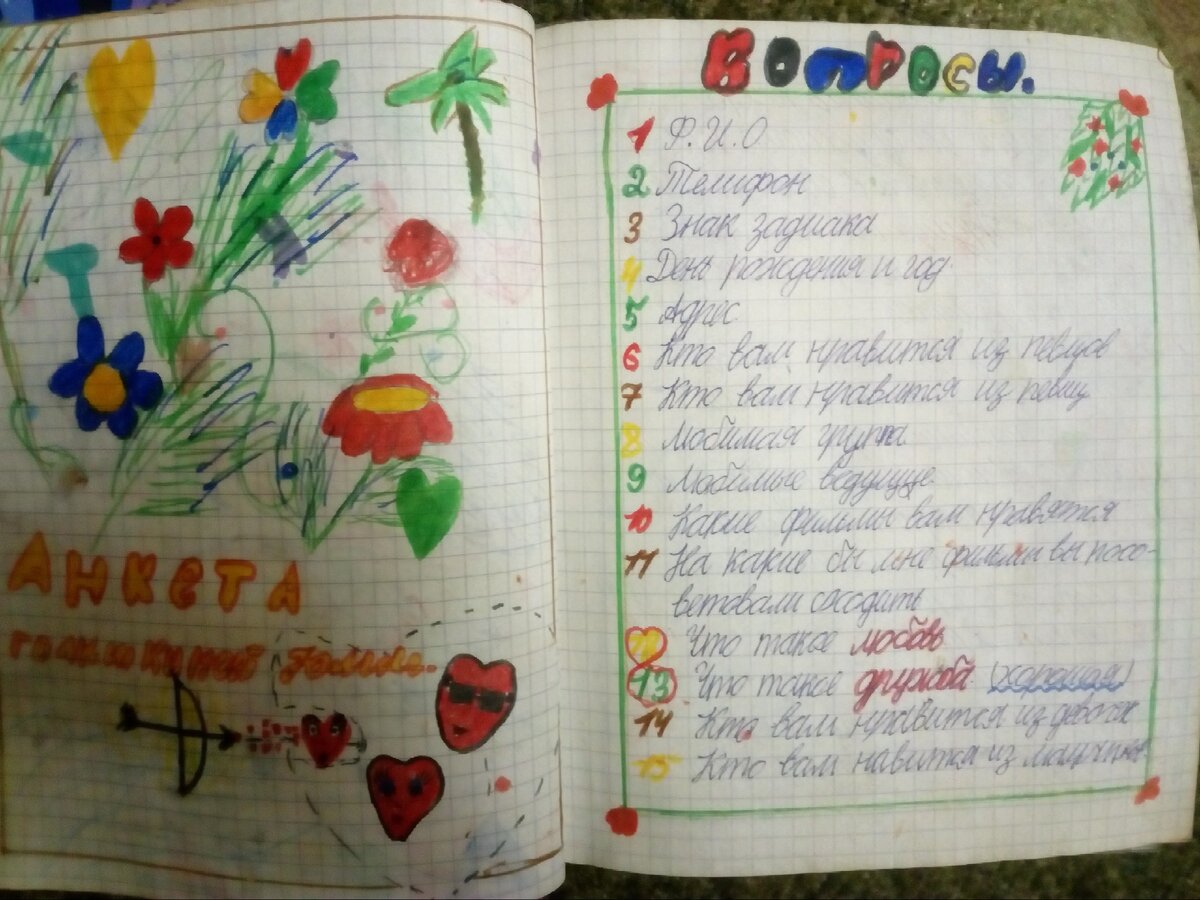 Анкета
Вопросы.
1 Ф.И.О
2 Телифон
3 Знак задиака
4 День рождения и год
5 Адрес
6 Кто вам нравится из певцов
7 Кто вам нравится из певиц
8 Любимая группа
9 Любимые ведущие
10 Какие фильмы вам нравятся
11 На какие бы мне фильмы вы посо-
ветовали сходить
12 Что такое любовь
13 Что такое дружба (хорошая)
14 Кто вам нравится из девочек
15 Кто вам навится из